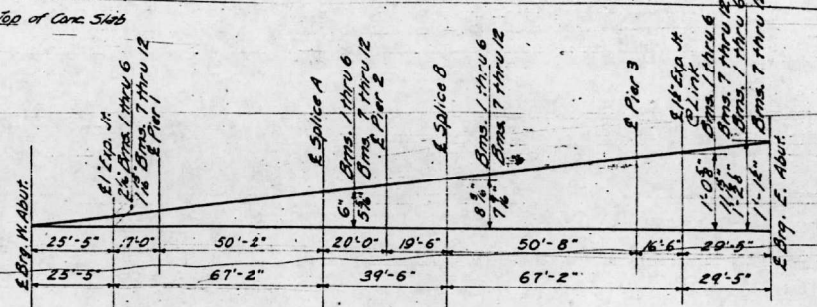 Top of Conc. Slab
℄ Brg. W. Abut.
℄ 1" Exp. Jt.
Bms. 1 thru 6
Bms. 7 thru 12
℄ Pier 1
℄ Splice A
Bms. 1 thru 6
Bms. 7 thru 12
6"
℄ Pier 2
℄ Splice B
Bms. 1 thru 6
Bms. 7 thru 12
℄ Pier 3
Exp. Jt.
@ Link
Bms. 1 thru 6
Bms. 7 thru 12
Bms. 1 thru 6
Bms. 7 thru 12
℄ Brg. E. Abut.
25'-5" 7'-0" 50'-2" 20'-0" 19'-6" 50'-8" 16'-6" 29'-5"
25'-5" 67'-2" 39'-6" 67'-2" 29'-5"